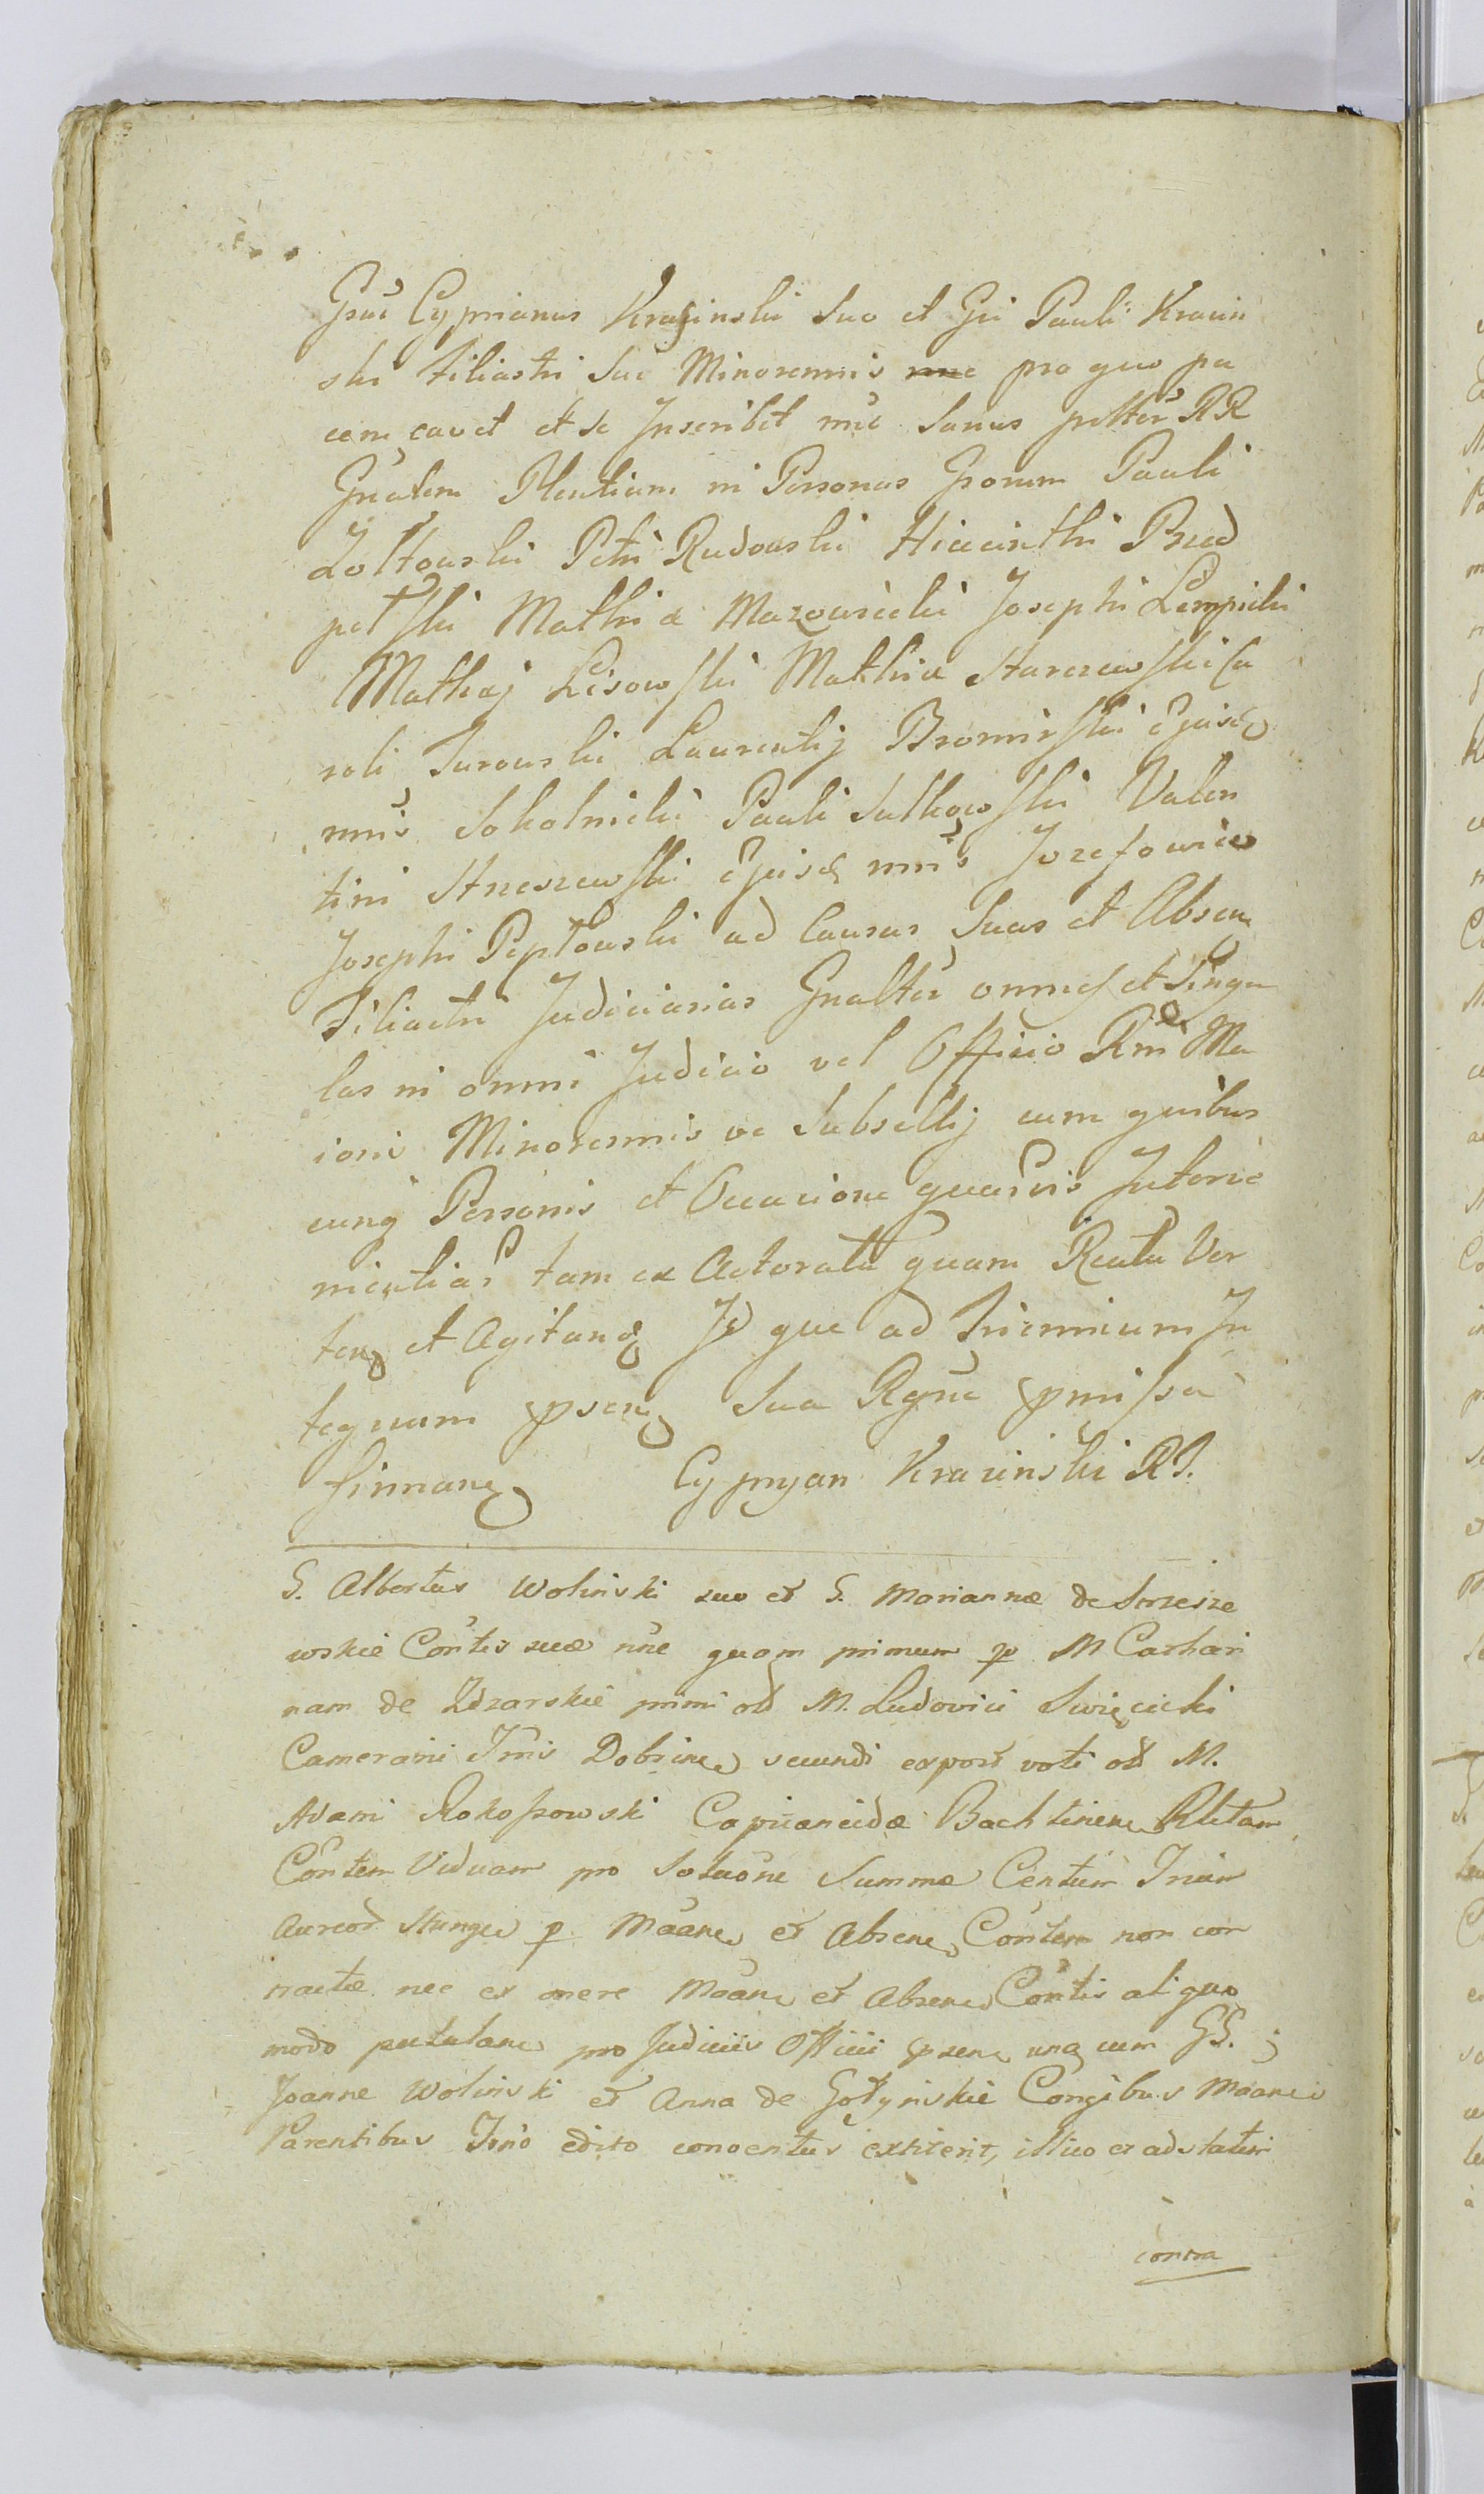 Gsus Cyprianus Krasinski Suo et Gsi Pauli Kracin
ski Filiastri Sui Minorennis pro quo pa
cem cavet et se Inscribit nnĩe Sanus RR
Gnalem Plentiam in Personas Gsorum Pauli
Zołtowski Petri Rudowski Hiacinthi Przed
petski Mathiæ Mazowiecki Josephi Lempicki
Mathæj Lisowski Mathiæ Starczewski Ca
roli Turowski Laurentij Bromirski Ejusd
nnis Sokolnicki Pauli Sutkowski Valen
tini Strzeszewski Ejusd nnis Jozefowicz
Josephi Peptowski ad Causas Suas et Absen
Filiastri Judiciarias Gnaltr omnes et Singu
las in omni Judicio vel Officio Rni Ma
ioris Minorisnis ve Subsellij cum quibus
cunq Personis et Occasione quarvis Juteric
mientias tam ex Actoratu quam Reatu Ver
ten et Agitand Id que ad Triennium In
tegrum psen Sua Rgne pmissa
firman Cypryan Krasinski RP.
G. Albertus Wolinski suo et G. Mariannæ de Strzesze
wskie Contis suæ nne quam primum p M Cathari
nam de Zdzarskie primi olĩ M. Ludovici Swięcicki
Camerarii Trris Dobrinen secundi expost voti olĩ M.
Adami Rokossowski Capitaneidæ Bachtinen Rlitam
Contem Viduam pro Solucone Summæ Centum Trium
Aureor Hunga p. Maane et Absene Contem non con
tractæ nec ex onere Maane et Absene Contis aliquo
modo putulane pro Judiciis Officii psene una cum GG.
Joanne Wolinski et Anna de Gołyniskie Congibus Maaneis
Parentibus Trno edito conventus extiterit, illico et adstatim
contra